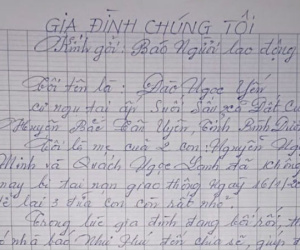 GIA ĐÌNH CHÚNG TÔI
Kính gởi: Báo Người lao động
Tôi tên là: Đào Ngọc Yến
cư ngụ tại ấp Suối Sâu, xã Đất Cu
Huyện Bắc Tân Uyên, tỉnh Bình Dươ
Tôi là mẹ của 2 con: Nguyễn Ngọ
Minh và Quách Ngọc Danh đã khôn
may bị tai nạn giao thông ngày 16/01/2
lại 3 đứa con còn rất nhỏ.
Trong lúc gia đình đang bối rối, th
nhà báo Như Phú đến chia sẻ, quý